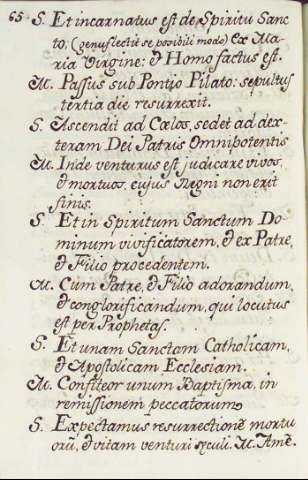 65 S. Et incarnatus est de Spiritu Sanc
to; (genuflectit se posibili modo) Ex Ma
ria Virgine: & Homo factus est.
M. Passus sub Pontio Pilato: sepultus
tertia die resurrexit.
S. Ascendit ad Cœlos, sedet ad dex-
teram Dei Patris Omnipotentis
M. Inde venturus est judicare vivos,
& mortuos, cujus Regni non erit
finis.
S. Et in Spiritum Sanctum Do-
minum vivificatorem, & ex Patre,
& Filio procedentem.
M. Cum Patre, & Filio adorandum,
& conglorificandum, qui locutus
est per Prophetas.
S. Et unam Sanctam Catholicam,
& Apostolicam Ecclesiam.
M. Confiteor unum Baptisma, in
remissionem peccatorum
S. Expectamus resurrectionẽ mortu
orũ, & vitam venturi sęculi. M. Amẽ.